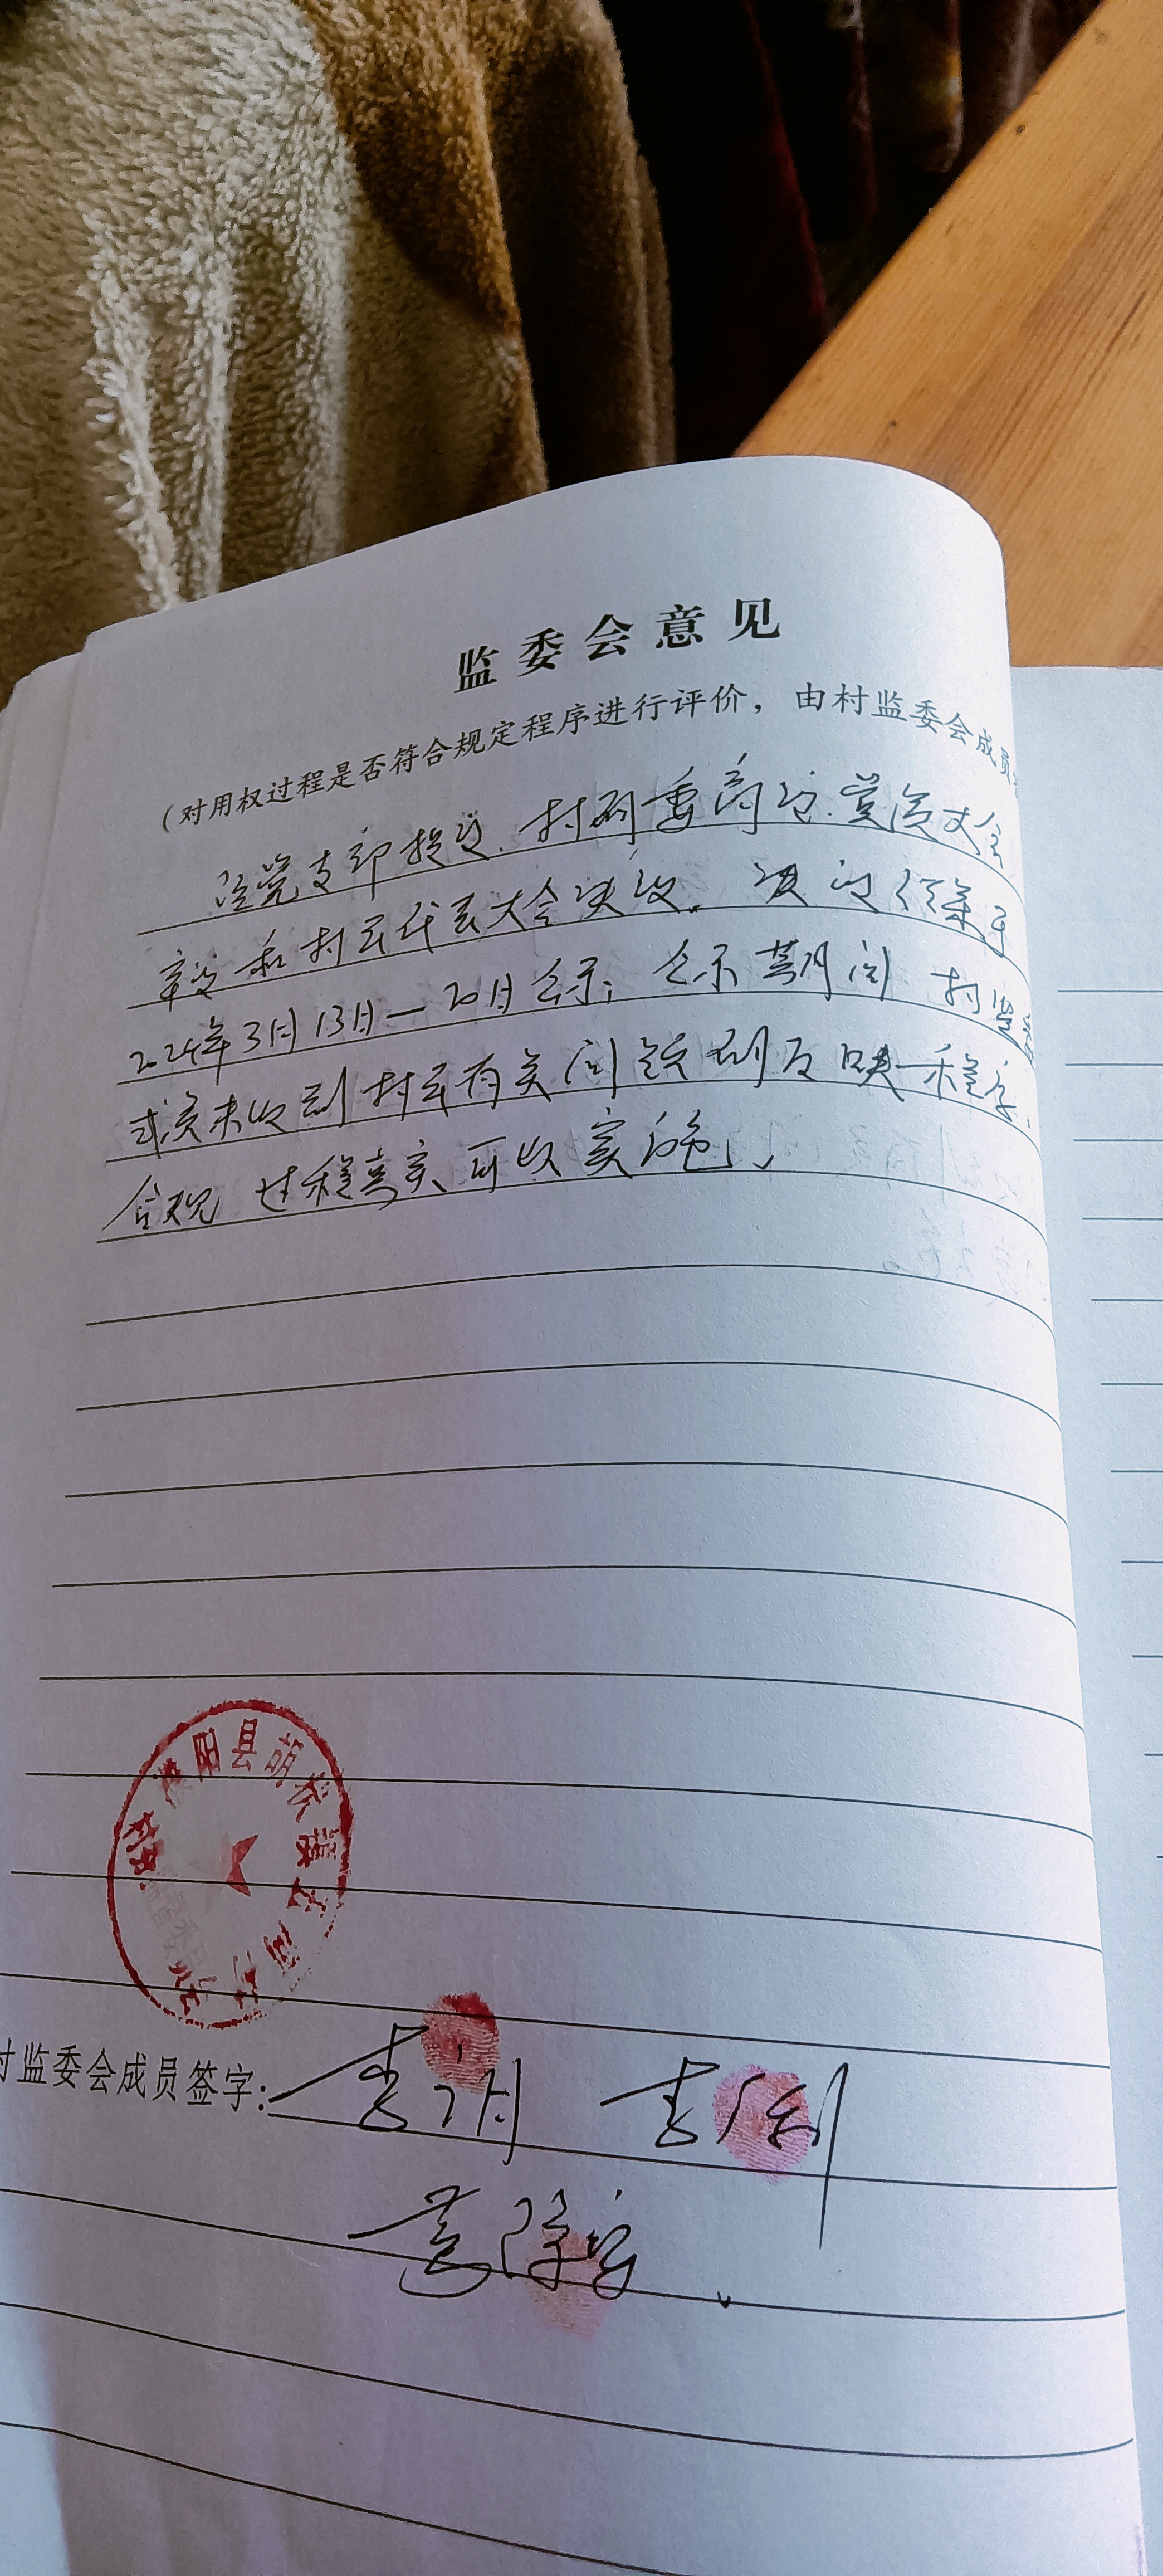 监委会意见
（对用权过程是否符合规定程序进行评价，由村监委会成员
经党支部提议、村两委商议、党员大会
审议和村民代表大会决议。决议结果于
2024年3月13日—20日公示，公示期间 村监委
成员未收到村民有关问题的反映 程序
合规 过程真实 可以实施。
濮阳县胡状镇
村监委会成员签字：